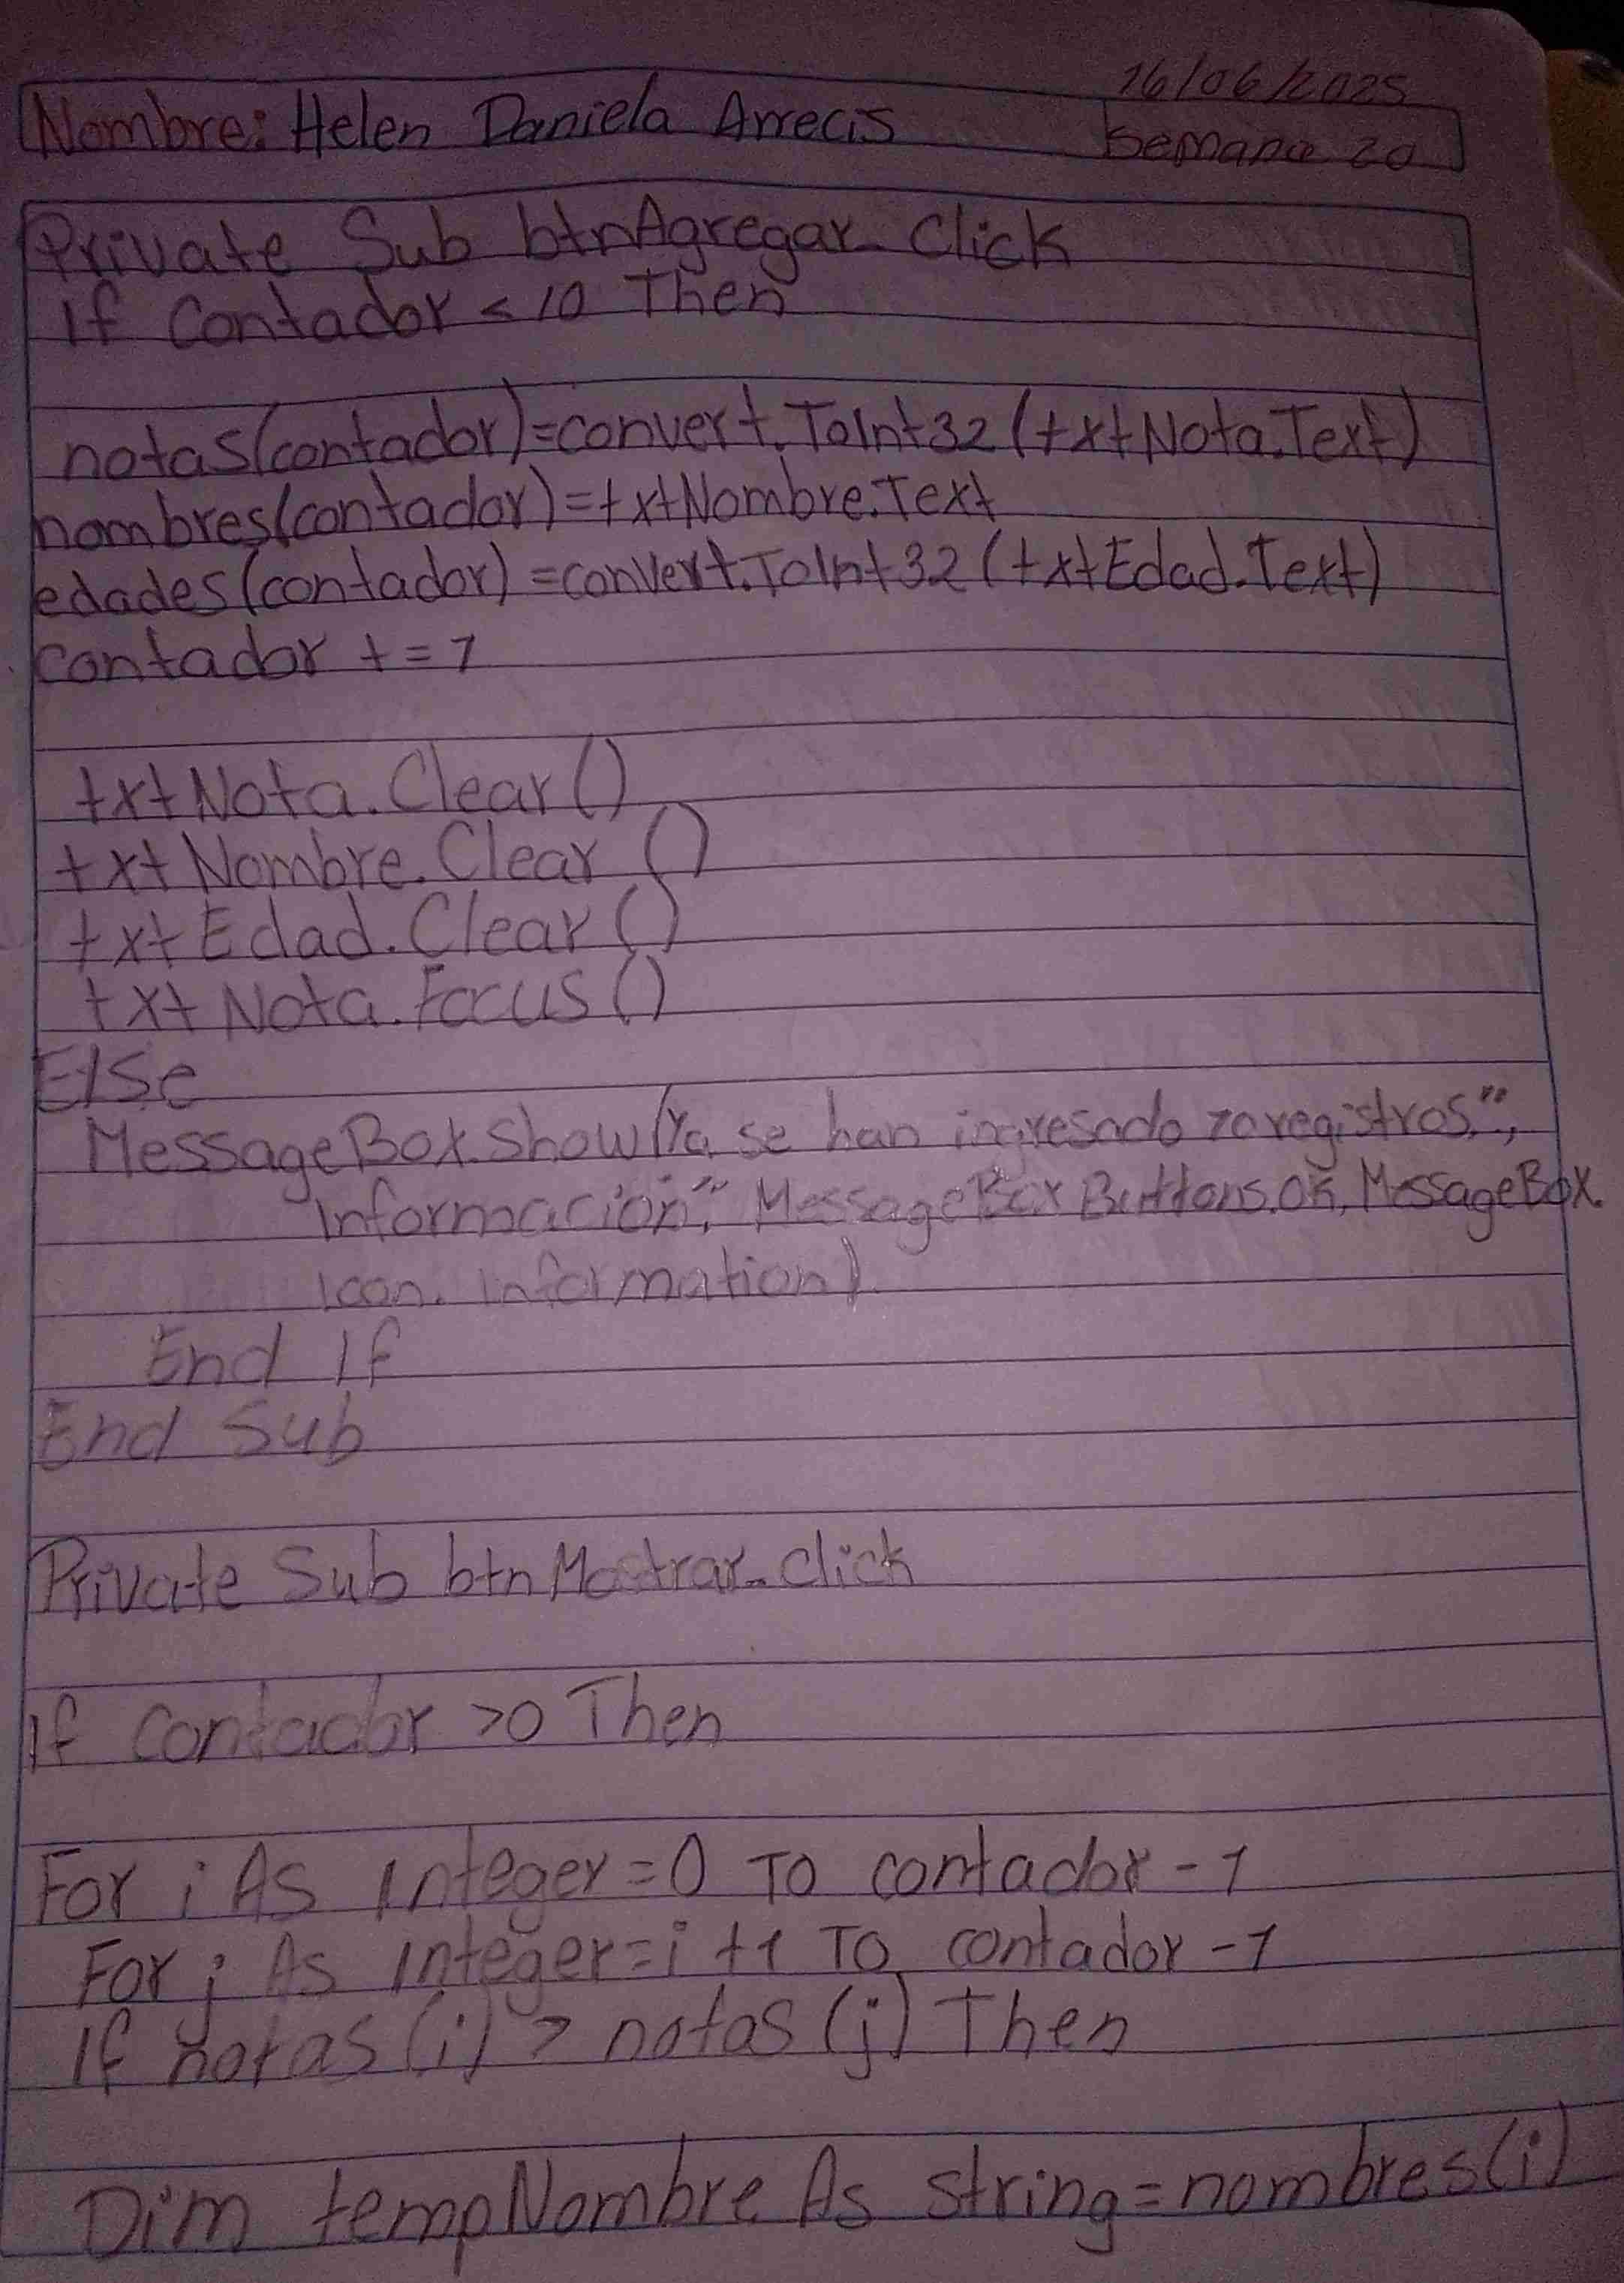 16/06/2025
Nombre: Helen Daniela Arrecis
Semana 20
Private Sub btnAgregar_Click
If Contador < 10 Then
notas(contador)=convert.ToInt32(txtNota.Text)
nombres(contador)=txtNombre.Text
edades(contador)=convert.ToInt32(txtEdad.Text)
contador += 1
txtNota.Clear()
txtNombre.Clear()
txtEdad.Clear()
txtNota.Focus()
Else
MessageBox.Show("Ya se han ingresado 10 registros.",
"Información", MessageBoxButtons.OK, MessageBox.
Icon.Information)
End If
End Sub
Private Sub btnMostrar_Click
If contador >0 Then
For i As Integer=0 To contador -1
For j As Integer=i +1 To contador -1
If notas(i) > notas(j) Then
Dim tempNombre As string=nombres(i)